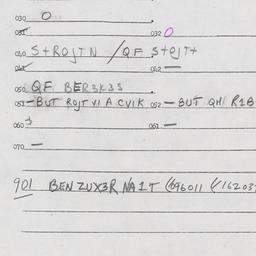 030 O
031 032 O
040 S+ROJTN / QF S+OJT+
041 042 —
050 QF BER3K3S
051 — BUT ROJT VIA CVIK 052 — BUT QHI R1B
060 3 061 —
070 —
901 BEN ZUX3R NA1T (696011 (/16203